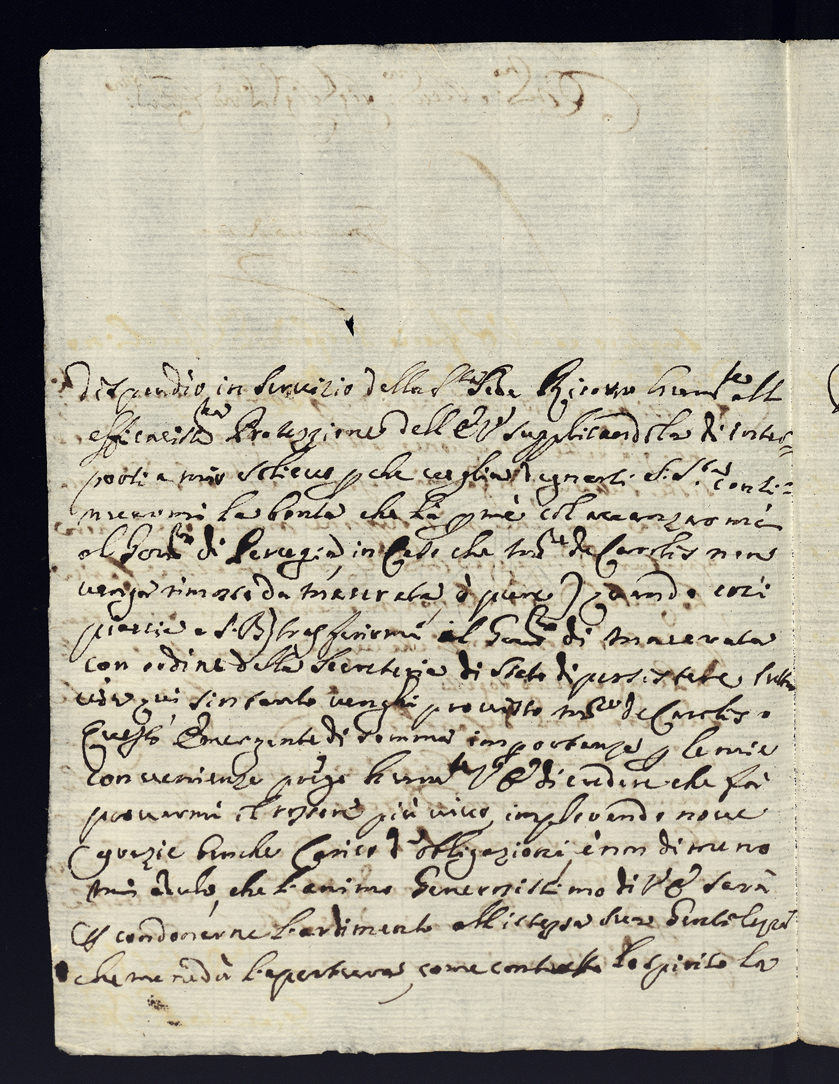 dispendio in servizio della S.ta Sede Ricorro hum.te all
efficacis.ma Protezzione dell E V supplicandola di inter=
porti a mio sollievo p che voglia degnarsi S. S.tà conti=
nuarmi la bontà che hà p me col avanzarmi
al Gov.no di Perugia, in caso che Mr de Carolis non
venga rimosso da Macerata ò pure) quando così
piaccia a S. B) trasferirmi al Gov.no di Macerata
con ordine della Secreteria di Stato di persistere
quì sin tanto venghi provisto Mr de Carolis.
Questo Emergente di somma importanza p le mie
convenienze porgo hum.te V E di credere che fà
provarmi il rossore più vivo, implorando nove
grazie benche Carico d obligazioni, è non di meno
che l'animo Generosissimo di V E sarà
p condonarne l'ardimento all istessa sua Gentilezza
che me ne dà l'apertura, come contutto lo spirito la